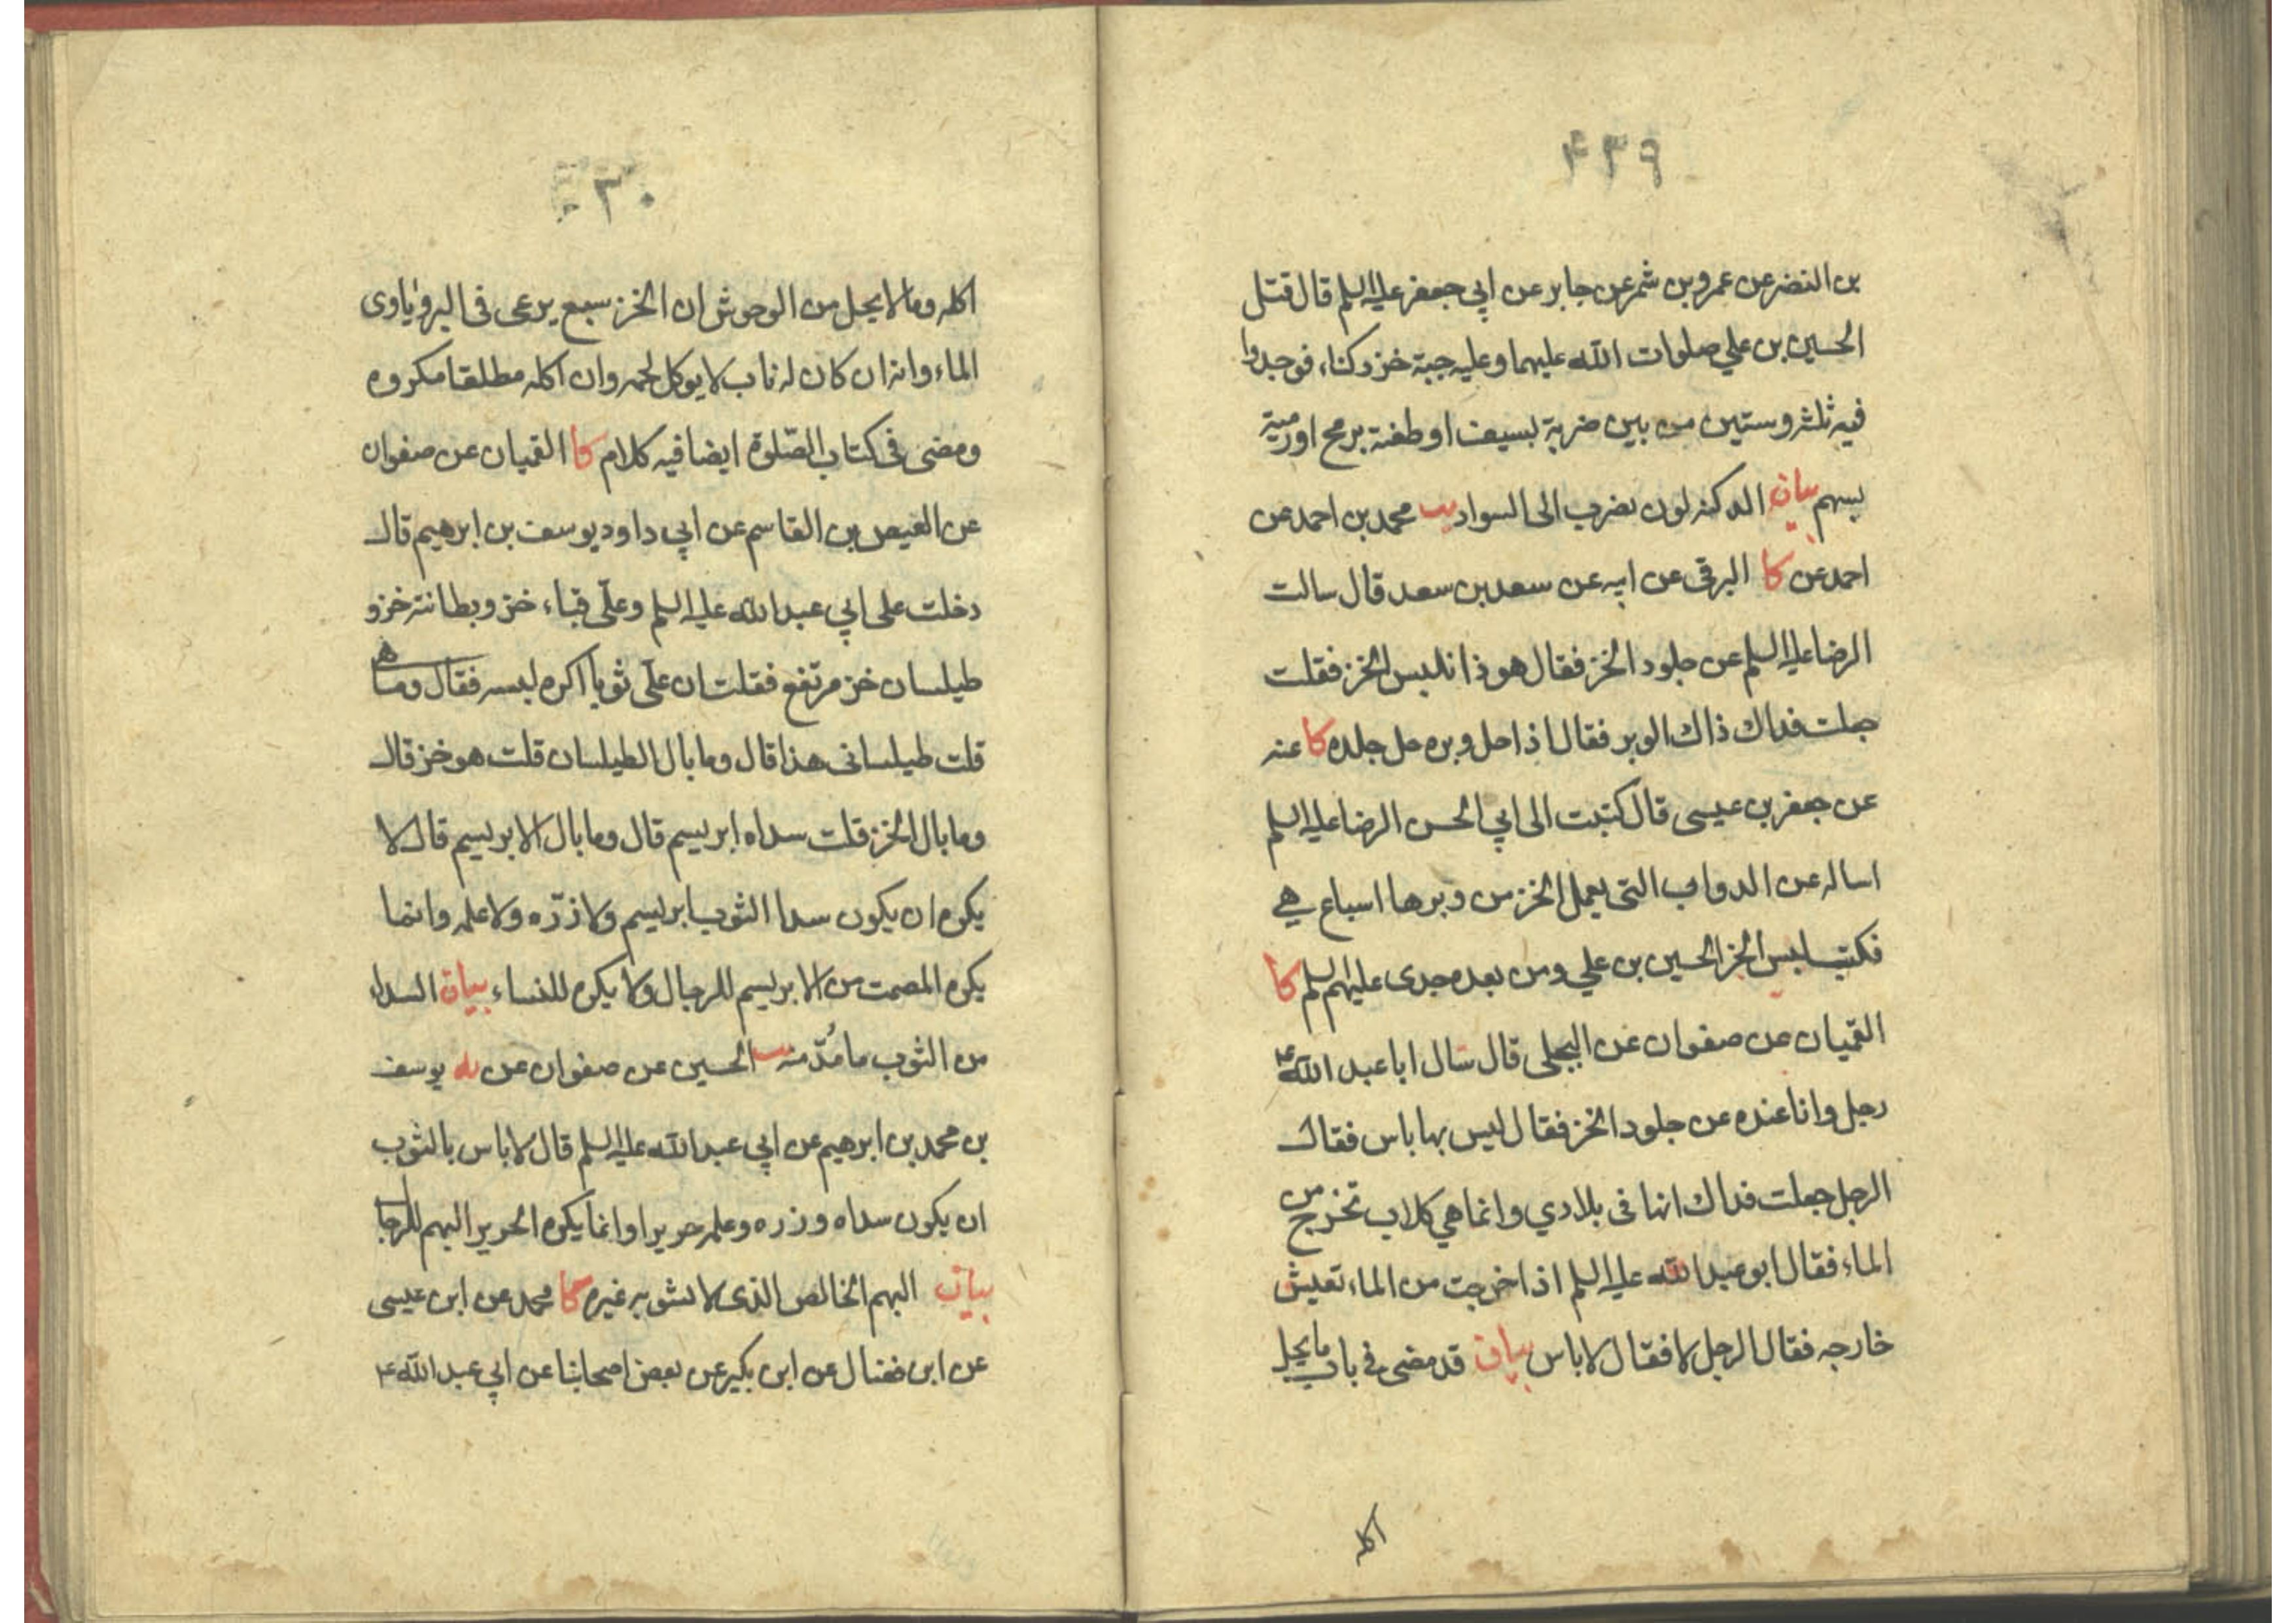 ٤٣٩
بن النضر عن عمرو بن شمر عن جابر عن ابي جعفر عليه السلم قال قتل
الحسين بن علي صلوات الله عليهما وعليه جبة خز دكناء فوجدوا
فيه ثلثة وستين من بين ضربة بسيف او طعنة برمح او رمية
بسهم بيان الدكنة لون يضرب الى السواد يب محمد بن احمد عن
احمد عن كا البرقى عن ابيه عن سعد بن سعد قال سالت
الرضا عليه السلم عن جلود الخز فقال هو ذا نلبس الخز فقلت
جعلت فداك ذاك الوبر فقال اذا حل وبره حل جلده كا عنه
عن جعفر بن عيسى قال كتبت الى ابي الحسن الرضا عليه السلم
اساله عن الدواب التى يعمل الخز من وبرها اسباع هي
فكتب لبس الخز الحسين بن علي ومن بعده جدى عليهم السلم كا
القميان عن صفوان عن البجلى قال سال ابا عبد الله ع
رجل وانا عنده عن جلود الخز فقال ليس بها باس فقال
الرجل جعلت فداك انها فى بلادي وانما هي كلاب تخرج من
الماء فقال ابو عبد الله عليه السلم اذا خرجت من الماء تعيش
خارجه فقال الرجل لا فقال لا باس بيان قد مضى في باب ما يحل
اكله
٣٠
اكله وما لا يحل من الوحوش ان الخز سبع يرعى فى البر وياوى
الماء وانه ان كان له ناب لا يوكل لحمه وان اكله مطلقا مكروه
ومضى فى كتاب الصّلوة ايضا فيه كلام كا القميان عن صفوان
عن العيص بن القاسم عن ابي داود يوسف بن ابرهيم قال
دخلت على ابي عبد الله عليه السلم وعلّى قباء خز وبطانته خز و
طيلسان خز مرتفع فقلت ان علّى ثوبا اكره لبسه فقال وما هو
قلت طيلسانى هذا قال وما بال الطيلسان قلت هو خز قال
وما بال الخز قلت سداه ابريسم قال وما بال الابريسم قال لا
يكره ان يكون سدا الثوب ابريسم ولا زرّه ولا علمه وانما
يكره المصمت من الابريسم للرجال ولا يكره للنساء بيان السداء
من الثوب ما مُدّ منه يب الحسين عن صفوان عن يه يوسف
بن محمد بن ابرهيم عن ابي عبد الله عليه السلم قال لا باس بالثوب
ان يكون سداه وزره وعلمه حريرا وانما يكره الحرير البهم للرجا
بيان البهم الخالص الذى لا يشوبه غيره كا محمد عن ابن عيسى
عن ابن فضال عن ابن بكير عن بعض اصحابنا عن ابي عبد الله ع